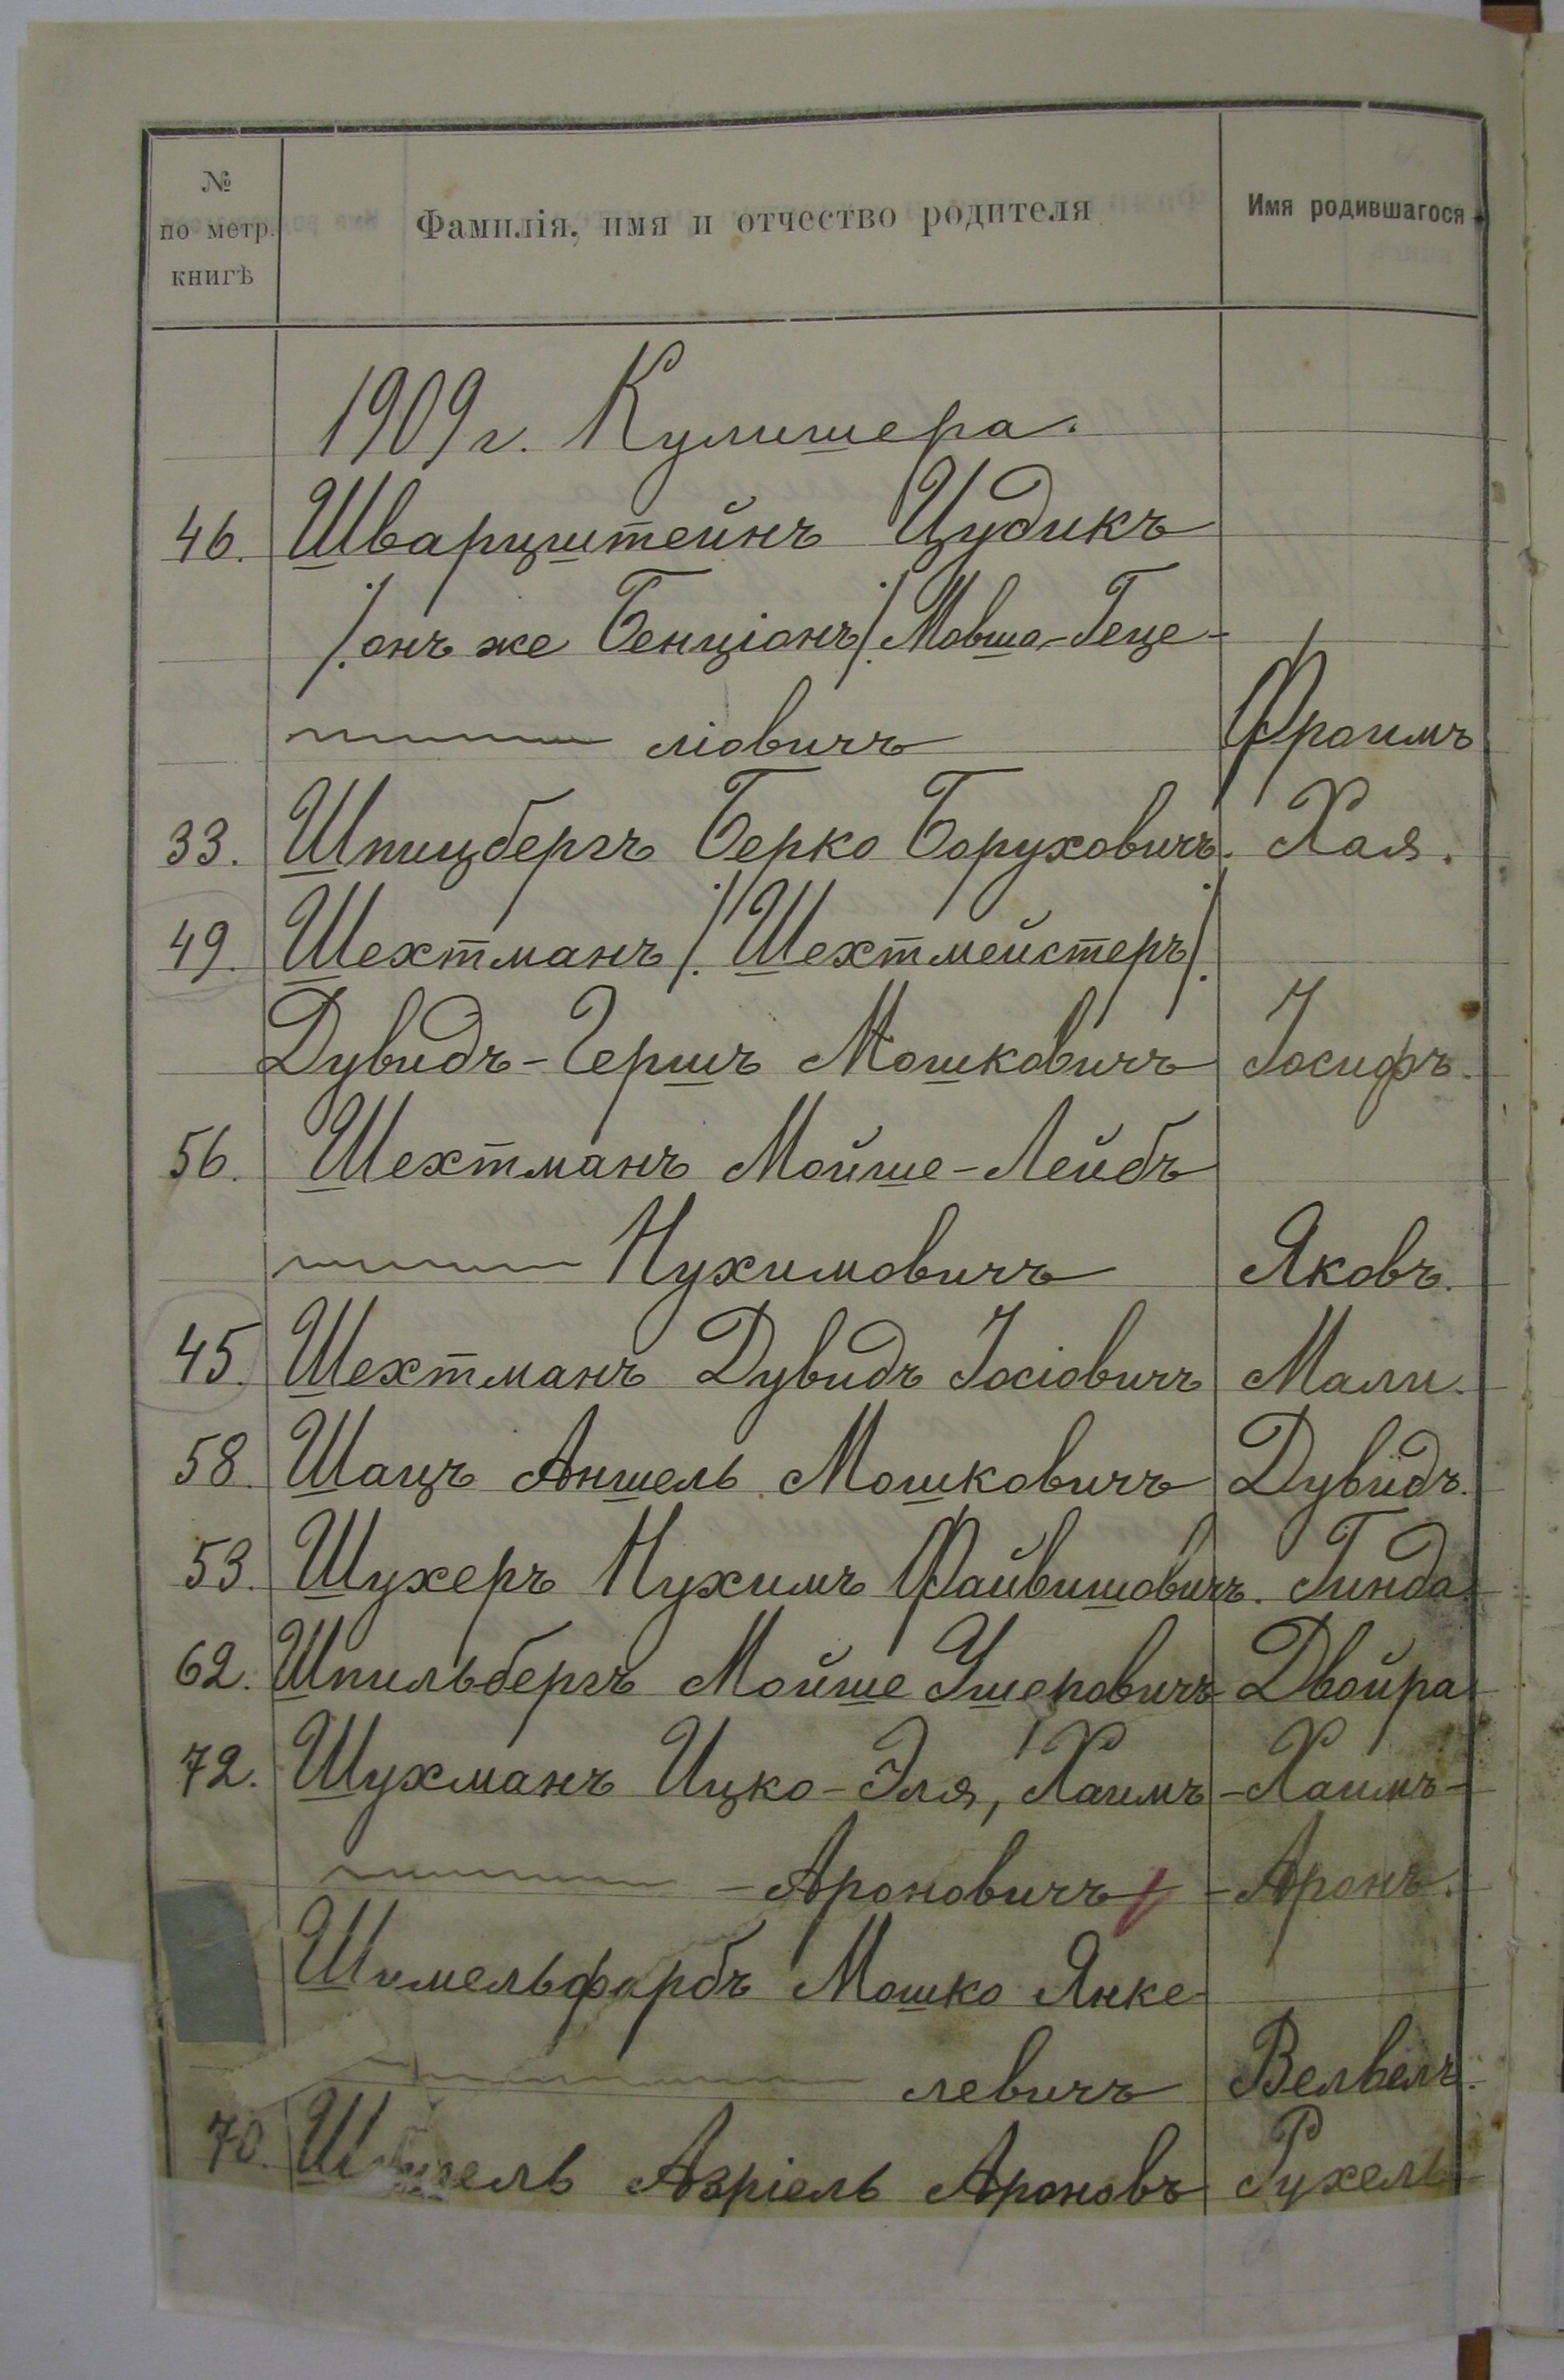 № по метр. книгѣ Фамилія, имя и отчество родителя Имя родившагося
1909 г. Кулишера.
46. Шварцштейнъ Цудикъ
/. онъ же Бенціонъ /. Мовша-Геце-
ліовичъ Фроимъ
33. Шпицбергъ Берко Боруховичъ. Хая.
49. Шехтманъ /. Шехтмейстеръ /.
Дувидъ-Гершъ Мошковичъ Іосифъ.
56. Шехтманъ Мойше-Лейбъ
Нухимовичъ Яковъ.
45. Шехтманъ Дувидъ Іосіовичъ Мали.
58. Шацъ Аншель Мошковичъ Дувидъ.
53. Шухеръ Нухимъ Файвишовичъ. Гинда.
62. Шпильбергъ Мойше Ушеровичъ Двойра
72. Шухманъ Ицко-Эля, Хаимъ- -Хаимъ-
-Ароновичъ -Аронъ.
Шимельфарбъ Мошко Янке-
левичъ Велвелъ.
70. Азріель Ароновъ Рухель